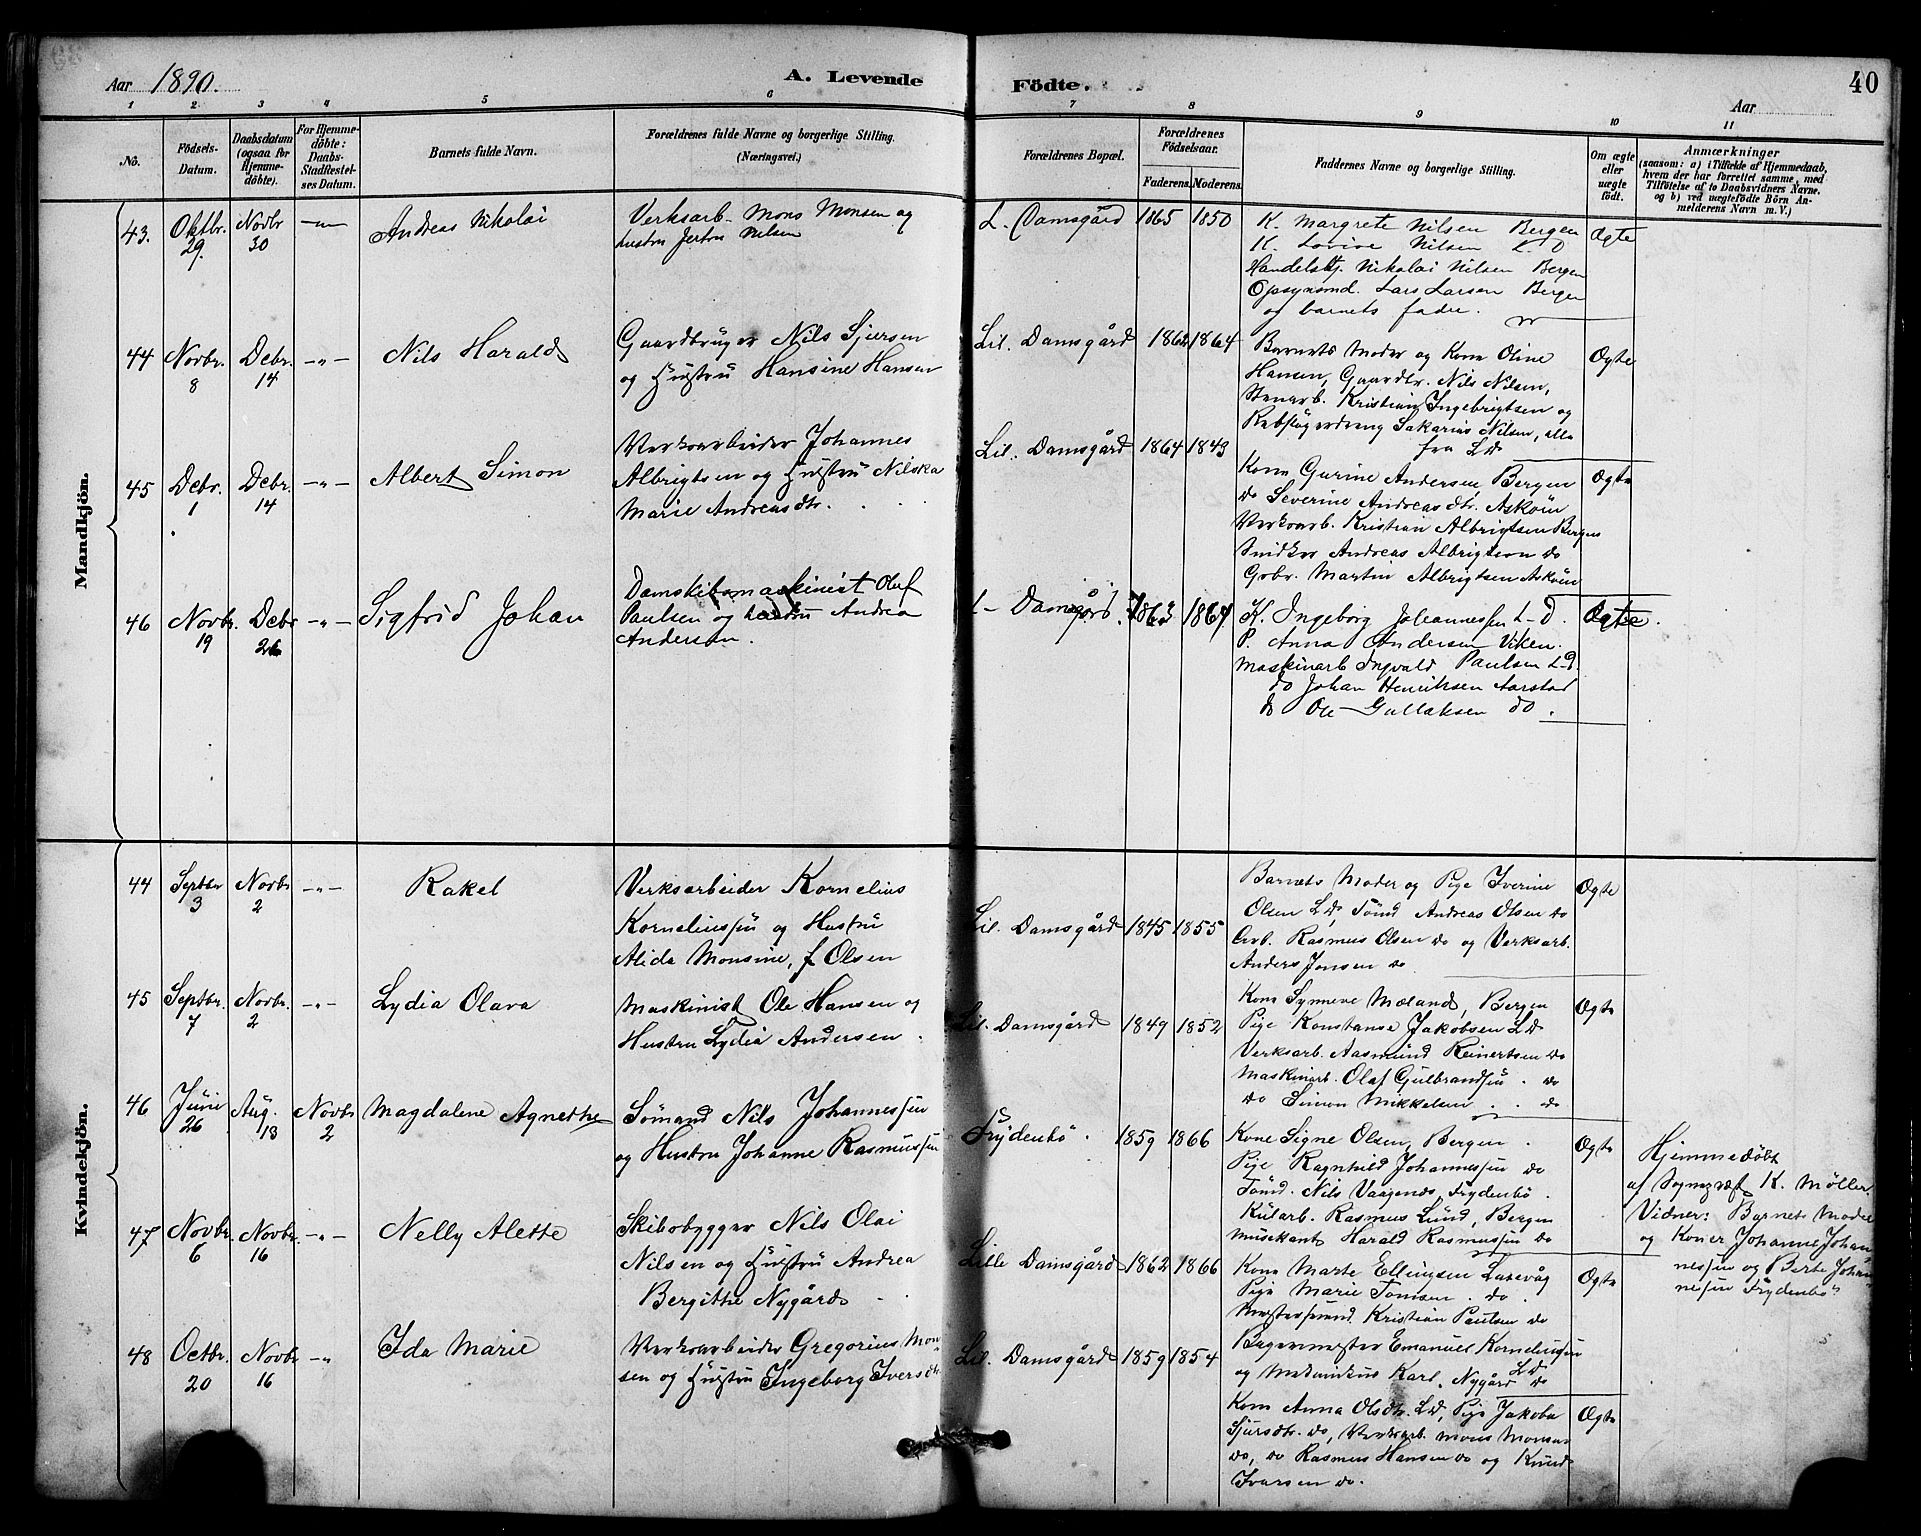 Aar 1890.
A. Levende
Födte.
40
Aar
1 2 3 4 5 6 7 8 9 10 11
No.
Födsels-
Datum.
Daabsdatum
(ogsaa for
Hjemme-
döbte).
For Hjemme-
döbte:
Daabs-
Stadfæstel-
ses Datum.
Barnets fulde Navn.
Forældrenes fulde Navne og borgerlige Stilling.
(Næringsvei.)
Forældrenes Bopæl.
Forældrenes
Födselsaar.
Faderens. Moderens.
Faddernes Navne og borgerlige Stilling.
Om ægte
eller
uægte
födt.
Anmærkninger
(saasom: a) i Tilfælde af Hjemmedaab,
hvem der har forrettet samme, med
Tilföielse af to Daabsvidners Navne.
og b) ved uægtefödte Börn An-
melderens Navn m. V.)
Mandkjön.
43. Oktbr. 29. Novbr 30 -"- Andreas Nikolai
Verksarb. Mons Monsen og
hustru Jertru Nilsen
L. Damsgård 1865 1850
K. Margrete Nilsen Bergen
K. Lovise Nilsen L D
Handelsbtj. Nikolai Nilsen Bergen
Opsynsmd. Lars Larsen Bergen
og barnets fader.
Ogte
44 Novbr. 8 Debr. 14 -"- Nils Harald
Gaardbruger Nils Sjursen
og Hustru Hansine Hansen
Lil. Damsgård 1862 1864
Barnets Moder og Kone Oline
Hansen, Gaardbr. Nils Nilsen,
Stenarb. Kristian Ingebrigtsen og
Rebslagerdreng Sakarias Nilsen, alle
fra LD
Ogte
45 Debr. 1 Debr. 14 -"- Albert Simon
Verksarbeider Johannes
Albrigtsen og Hustru Nilska
Marie Andreasdtr.
Lil. Damsgård 1864 1843
Kone Gurine Andersen, Bergen
do Severine Andreasdtr. Asköen
Verksarb. Kristian Albrigtsen Bergen
Snidker Andreas Albrigtsen do
Grbr. Martin Albrigtsen Asköen
Ogte
46 Novbr. 19 Debr 26 -"- Sigfrid Johan
Damskibsmaskinist Oluf
Paulsen og hustru Andrea
Anderson.
L- Damsgård 1863 1864
K. Ingeborg Johannessen L-D.
P. Anna Andersen Viken.
Maskinarb Ingvald Paulsen L-D
do Johan Henriksen Aarstad
do Ole Gullaksen do.
Ogte.
Kvindekjön.
44 Septbr 3 Novbr 2 -"- Rakel
Verksarbeider Kornelius
Korneliussen og Hustru
Alida Monsine, f Olsen
Lil. Damsgård 1845 1855
Barnets Moder og Pige Iverine
Olsen LD, Tömd Andreas Olsen do
Arb. Rasmus Olsen do og Verksarb.
Anders Jonsen do
Ogte
45 Septbr. 7 Novbr. 2 -"- Lydia Olava
Maskinist Ole Hansen og
Hustru Lydia Andersen.
Lil. Damsgård 1849 1852
Kone Synneve Mæland, Bergen
Pige Konstanse Jakobsen LD
Verksarb. Aasmund Reinertsen do
Maskinarb. Olaf Gulbrandsen. do
do Simon Mikkelsen.. do
Ogte
46 Juni 26 Aug. 13 Novbr 2 Magdalene Agnethe
Sömand Nils Johannessen
og Hustru Johanne Rasmussen
Frydenbö. 1859 1866
Kone Signe Olsen, Bergen.
Pige Ragnhild Johannessen do
Tömd. Nils Vaagenes, Frydenbö.
Kularb. Rasmus Lund, Bergen
Musekant Harald Rasmussen do
Ogte
Hjemmedöbt
af Sognepræst K. Møller.
Vidner: Barnets Moder
og Koner Johanne Johan
nessen og Berte Johan
nessen Frydenbö
47 Novbr. 6 Novbr. 16 -"- Nelly Alette
Skibsbygger Nils Olai
Nilsen og Hustru Andrea
Bergithe Nygård
Lille Damsgård 1862 1866
Kone Marte Ellingsen Laxevåg
Pige Marie Tomsen. do.
Mestersmed Kristian Paulsen do
Bagermester Emanuel Korneliussen LD
og Mekanikus Karl Nygård do
Ogte
48 Octbr. 20 Novbr 16 -"- Ida Marie
Verksarbeider Gregorius Mon
sen og Hustru Ingeborg Iversdtr.
Lil. Damsgård 1859 1854
Kone Anna Olsdtr. LD, Pige Jakoba
Sjursdtr. do, Verksarb. Mons Monsen
do, do Rasmus Hansen do og Knud
Ivarsen do.
Ogte